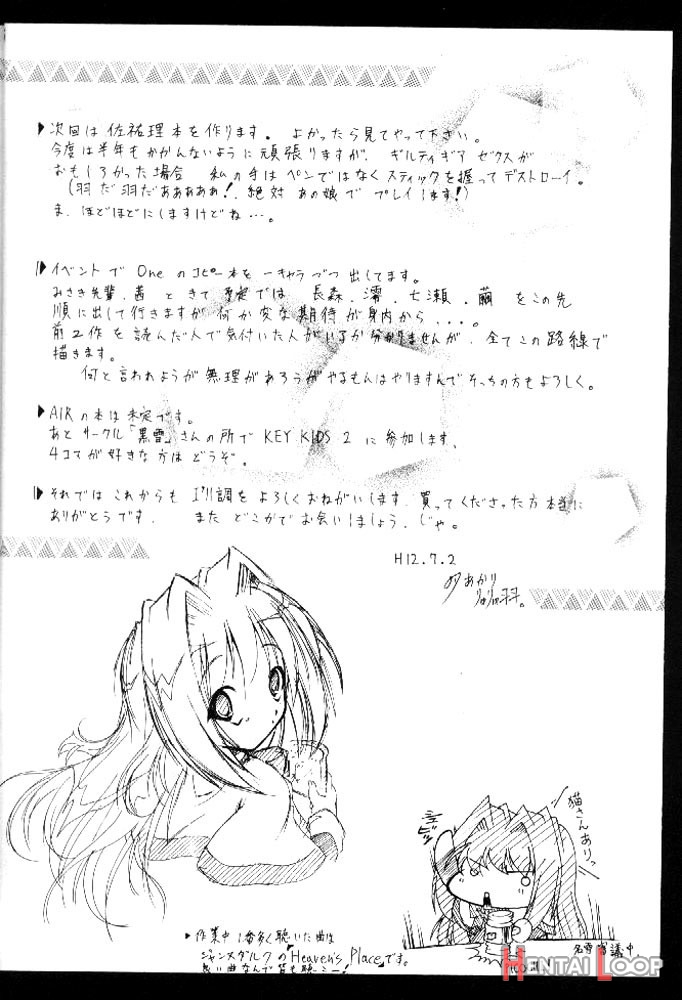 次回は佐祐理本を作ります。よかったら見てやって下さい。
今度は半年もかかんないように頑張りますが、ギルティギア ゼクスが
おもしろかった場合 私の手はペンではなくスティックを握ってデストローイ。
(羽だ羽だあああああ!、絶対 あの娘で プレイします!)
ま、ほどほどにしますけどね…。
イベントで Oneのコピー本を一キャラづつ出してます。
みさき先輩、茜 ときて 予定では 長森、澪、七瀬、繭 をこの先
順に出して行きますが 何か変な期待が身内から ...。
前2作を読んだ人で気付いた人がいるか分かりませんが、全てこの路線で
描きます。
何と言われようが無理があろうがやるもんはやりますんでそっちの方もよろしく。
AIRの本は未定です。
あと サークル「黒雪」さんの所で KEY KIDS 2 に参加します、
4コマが好きな方は どうぞ。
それでは これからも I'll調を よろしくおねがいします、買ってくださった方本当に
ありがとうです、 また どこかでお会いしましょう、じゃ。
H12.7.2
猫さんありっ
作業中 1番多く聴いた曲は
ジャンヌダルクの「Heaven's Place」です。
良い曲なんで皆も聴こー!
名雪 審議中
HENTAI LOOP